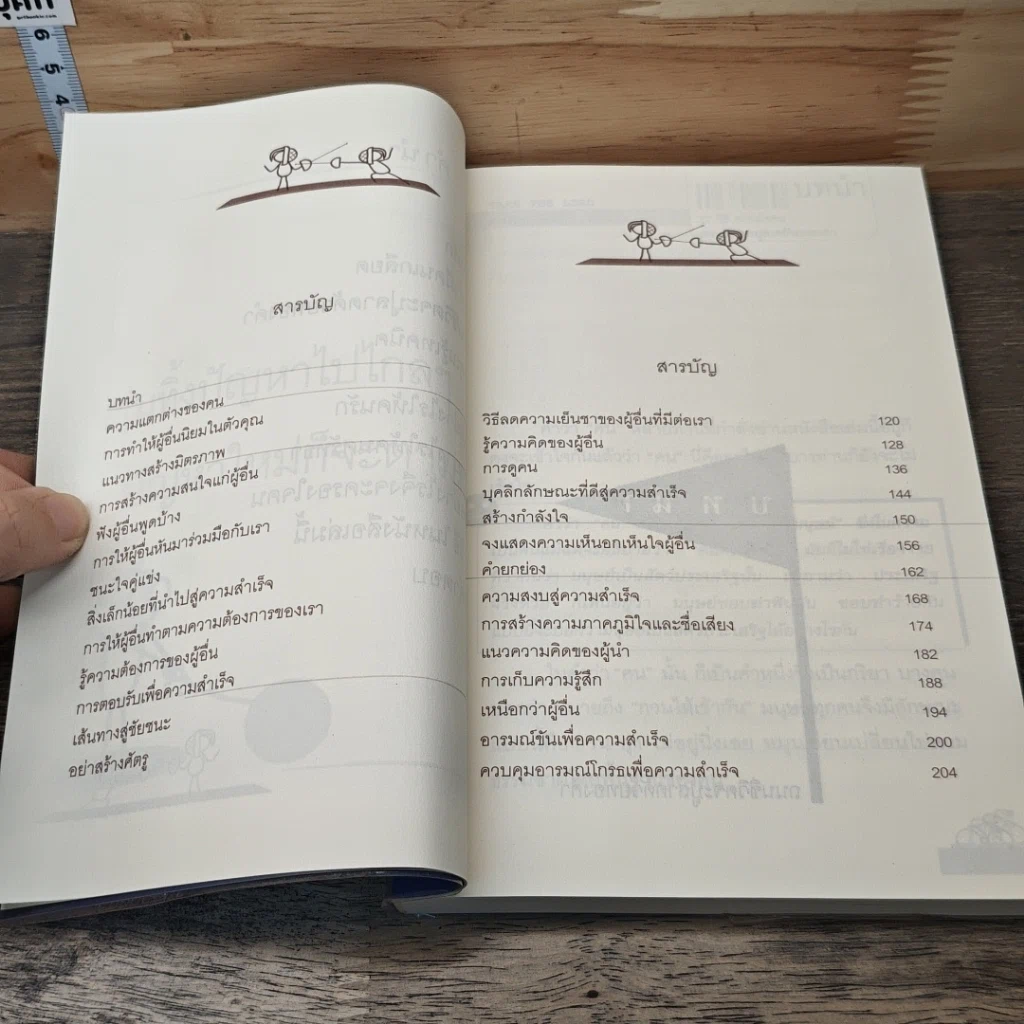 6
5
4
สารบัญ
บทนำ
ความแตกต่างของคน
การทำให้ผู้อื่นนิยมในตัวคุณ
แนวทางสร้างมิตรภาพ
การสร้างความสนใจแก่ผู้อื่น
ฟังผู้อื่นพูดบ้าง
การให้ผู้อื่นหันมาร่วมมือกับเรา
ชนะใจคู่แข่ง
สิ่งเล็กน้อยที่นำไปสู่ความสำเร็จ
การให้ผู้อื่นทำตามความต้องการของเรา
รู้ความต้องการของผู้อื่น
การตอบรับเพื่อความสำเร็จ
เส้นทางสู่ชัยชนะ
อย่าสร้างศัตรู
สารบัญ
วิธีลดความเย็นชาของผู้อื่นที่มีต่อเรา 120
รู้ความคิดของผู้อื่น 128
การดูคน 136
บุคลิกลักษณะที่ดีสู่ความสำเร็จ 144
สร้างกำลังใจ 150
จงแสดงความเห็นอกเห็นใจผู้อื่น 156
คำยกย่อง 162
ความสงบสู่ความสำเร็จ 168
การสร้างความภาคภูมิใจและชื่อเสียง 174
แนวความคิดของผู้นำ 182
การเก็บความรู้สึก 188
เหนือกว่าผู้อื่น 194
อารมณ์ขันเพื่อความสำเร็จ 200
ควบคุมอารมณ์โกรธเพื่อความสำเร็จ 204